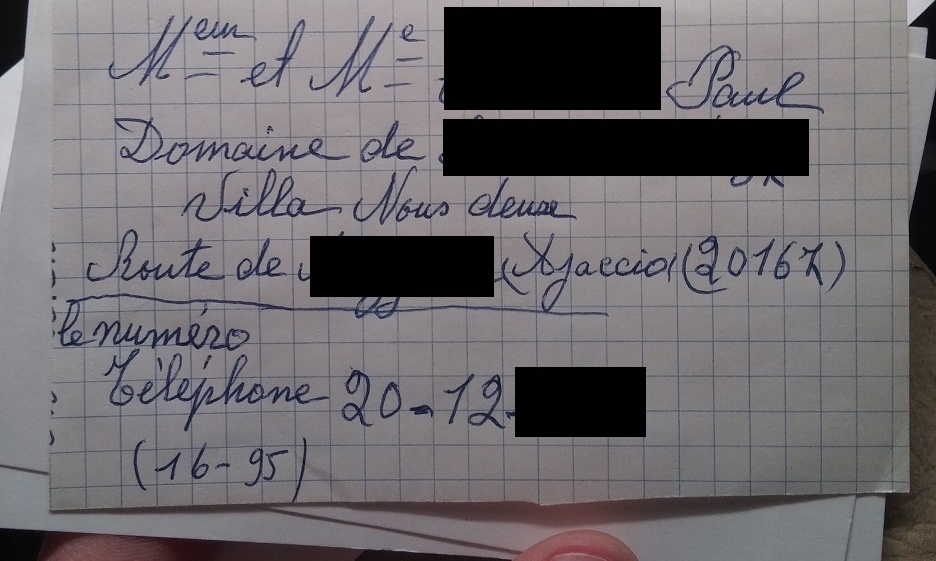 Meur et Me Paul
Domaine de
Villa Nous deux
Route de Ajaccio (20167)
le numéro
Téléphone 20-12-
(16-95)